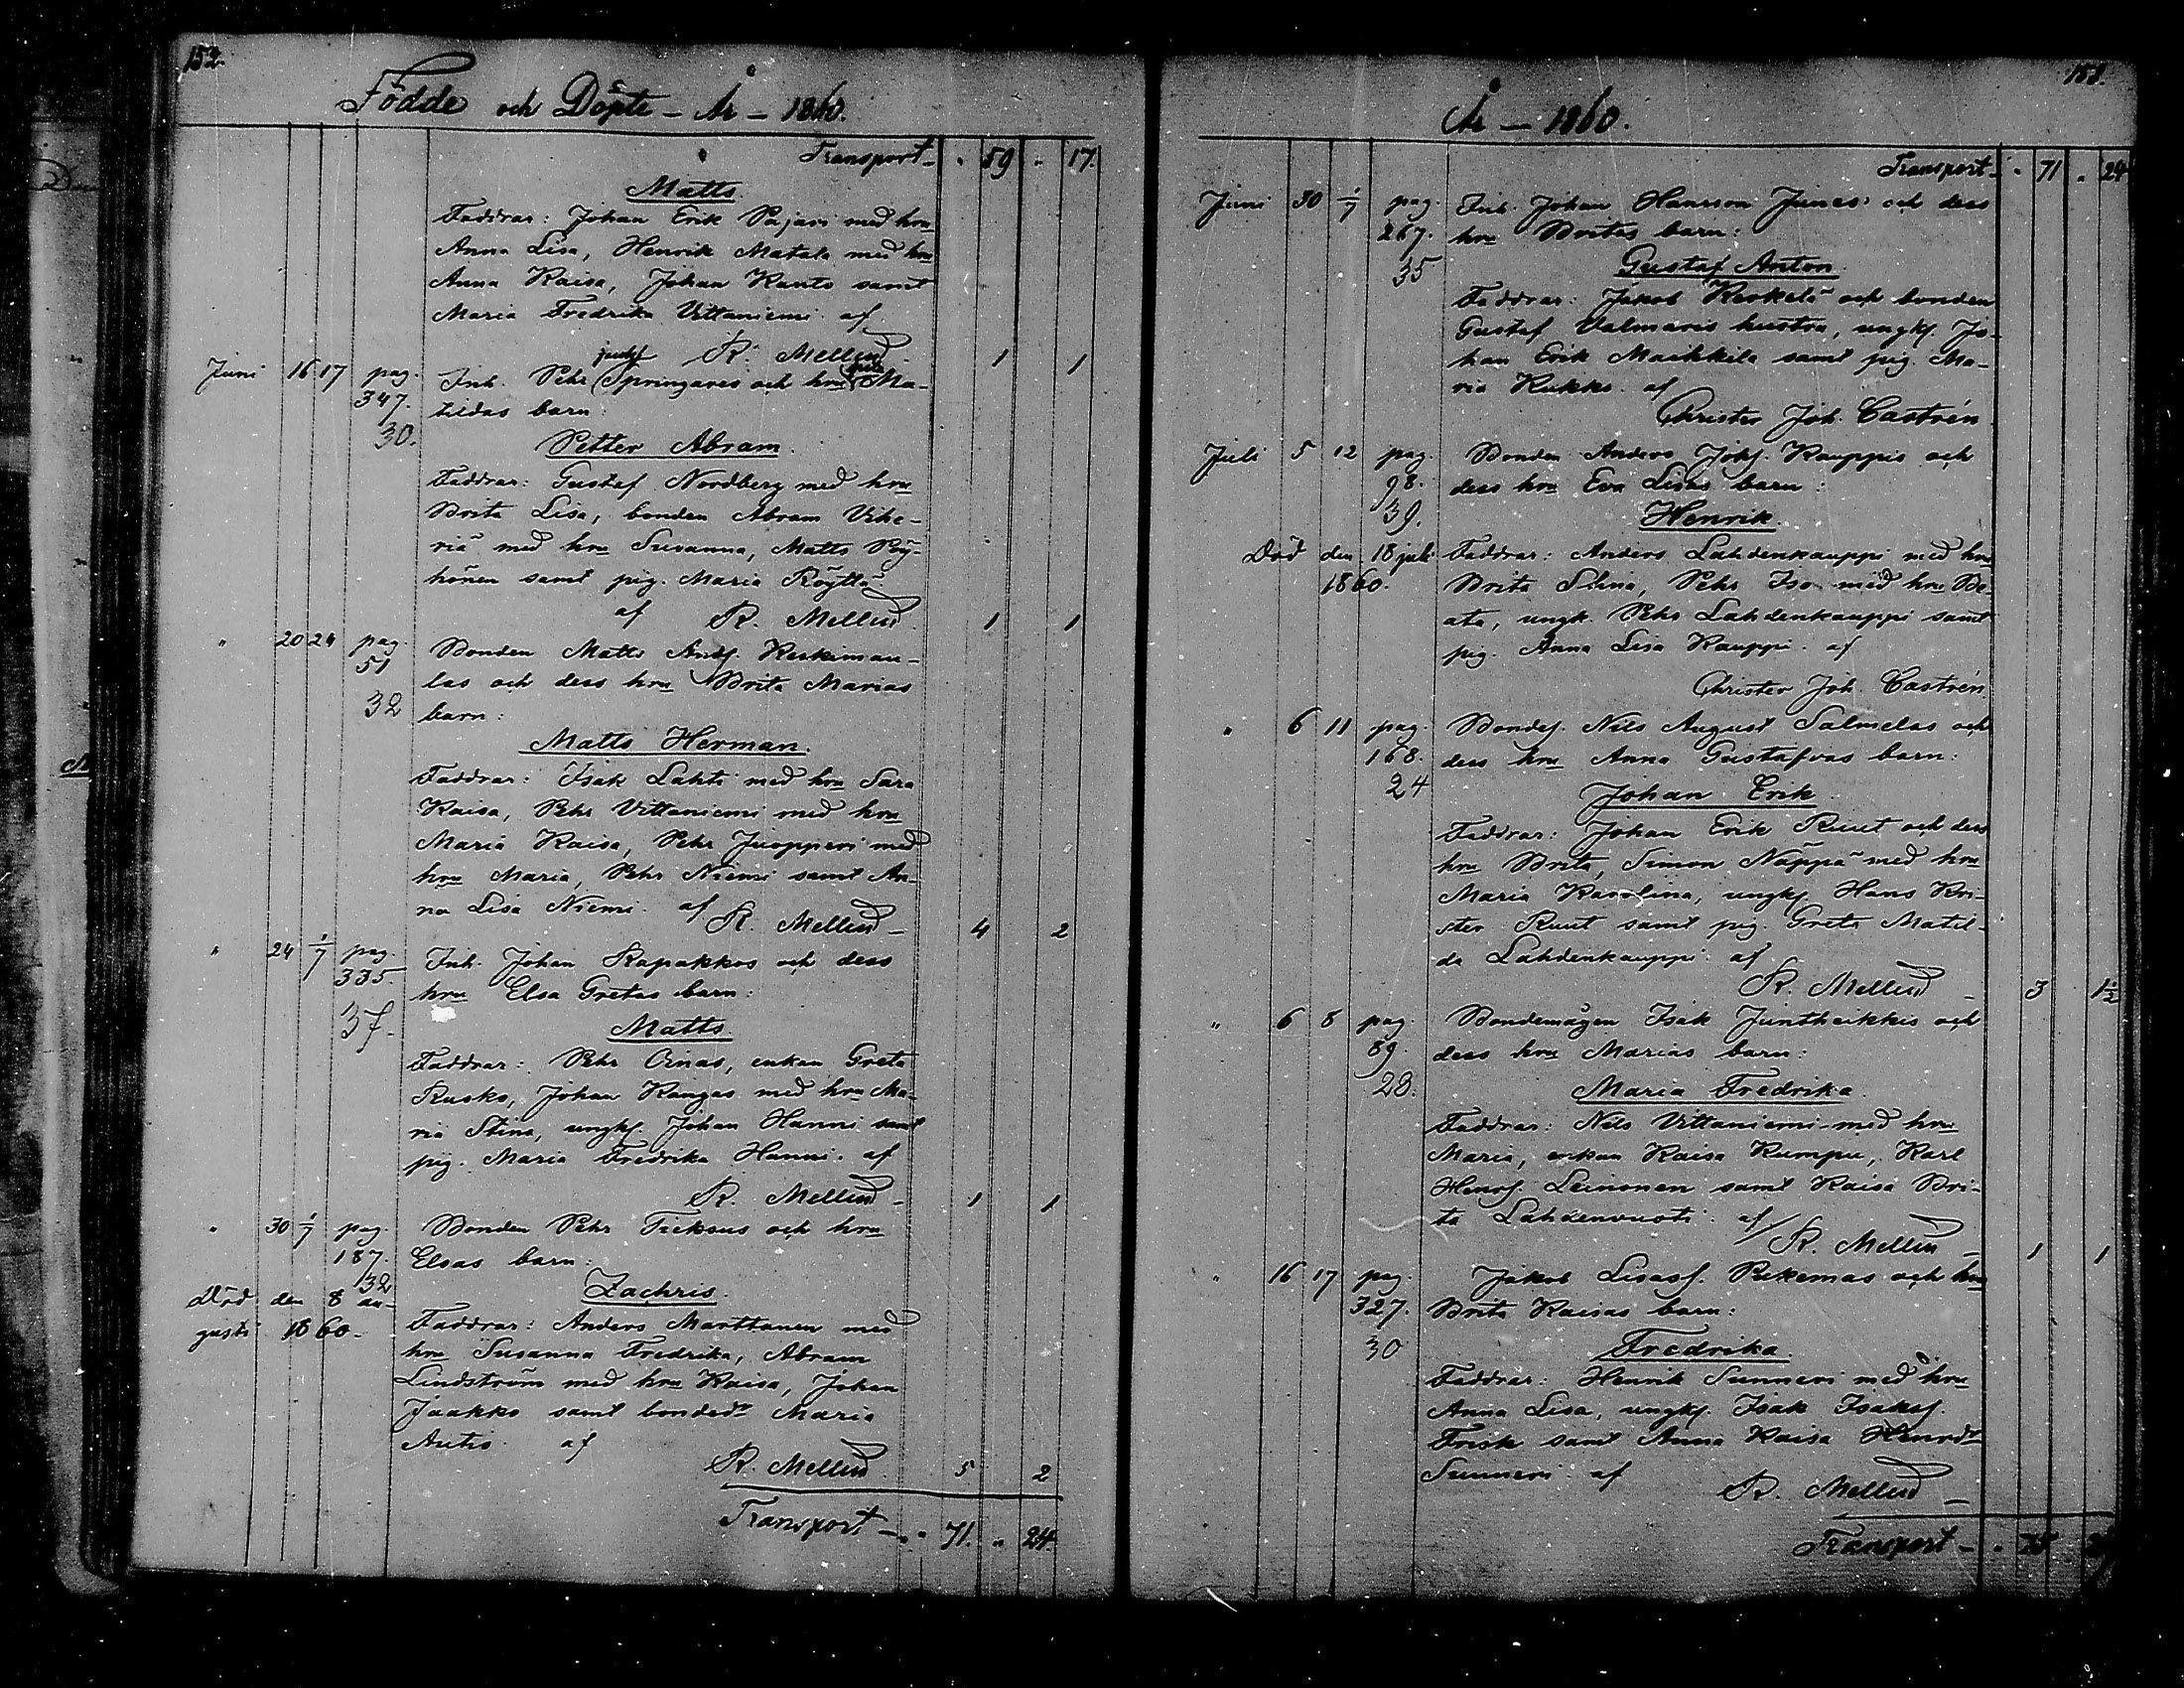 152.
Födde och Döpte - År - 1860.
Transport - " 59 " 17.
Matts.
Faddrar: Johan Erik Pajari med hru
Anna Lisa, Henrik Matala med hru
Anna Kaisa, Johan Kanto samt
Maria Fredrika Vittaniemi af
R. Mellin - 1 1
Juni 16 17 pag. 347. 30.
Inh. Pehr Springares och hru Ma-
tildas barn:
Petter Abram.
Faddrar: Gustaf Nordberg med hru
Brita Lisa, bonden Abram Vihe-
riä med hru Susanna, Matts Pöy-
hönen samt pig. Maria Röyttä
af R. Mellin 1 1
" 20 24 pag. 51 32
Bonden Matts Andsf. Keskimau-
las och dess hru Brita Marias
barn:
Matts Herman.
Faddrar: Isak Lahti med hru Sara
Kaisa, Pehr Vittaniemi med hru
Maria Kaisa, Pehr Juopperi med
hru Maria, Pehr Niemi samt An-
na Lisa Niemi. af
R. Mellin - 4 2
" 24 1/7 pag. 335. 37.
Inh. Johan Rapakkos och dess
hru Elsa Gretas barn:
Matts.
Faddrar: Pehr Oinas, enkan Greta
Rusko, Johan Kangas med hru Ma-
ria Stina, ungkf. Johan Hanni samt
pig. Maria Fredrika Hanni. af
R. Mellin - 1 1
" 30 1/7 pag. 187. 32
Bonden Pehr Tieksus och hru
Elsas barn:
Zachris.
Död den 8 au-
gusti 1860.
Faddrar: Anders Marttanen med
hru Susanna Fredrika, Abram
Lindström med hru Kaisa, Johan
Jaakko samt bonded:r Maria
Autio. af
R. Mellin 5 2
Transport - " 71. " 24.
153.
År - 1860.
Transport - " 71 " 24
Juni 30 1/7 pag. 267. 35
Inh. Johan Hansson Junes och dess
hru Britas barn:
Gustaf Anton.
Faddrar: Jakob Keskelä och bonden
Gustaf Valmaris hustru, ungkf. Jo-
han Erik Maikkila samt pig. Ma-
ria Kukko. af
Christer Joh. Castrén.
Juli 5 12 pag. 98. 39.
Bonden Anders Johsf. Kauppis och
dess hru Eva Lisas barn:
Henrik.
Död den 18 juli
1860.
Faddrar: Anders Lahdenkauppi med hru
Brita Stina, Pehr Iso med hru Be-
ata, ungk. Pehr Lahdenkauppi samt
pig. Anna Lisa Kauppi. af
Christer Joh. Castrén.
" 6 11 pag. 168. 24
Bondes. Nils August Salmelas och
dess hru Anna Gustafvas barn:
Johan Erik
Faddrar: Johan Erik Ruut och dess
hru Brita, Simon Näppä med hru
Maria Karolina, ungkf. Hans Kri-
ster Ruut samt pig. Greta Matil-
da Lahdenkauppi. af
R. Mellin - 3 1½
" 6 8 pag. 89. 28.
Bondemågen Isak Juntheikkis och
dess hru Marias barn:
Maria Fredrika.
Faddrar: Nils Vittaniemi med hru
Maria, enkan Kaisa Kumpu, Karl
Henrsf. Leinonen samt Kaisa Bri-
ta Lahdenvuoti. af
R. Mellin - 1 1
" 16 17 pag. 327. 30
Jakob Lisasf. Pekemas och hru
Brita Kaisas barn:
Fredrika.
Faddrar: Henrik Sunneri med hru
Anna Lisa, ungkf. Isak Isaksf.
Frisk samt Anna Kaisa Henrdr
Sunneri. af
R. Mellin -
Transport - "